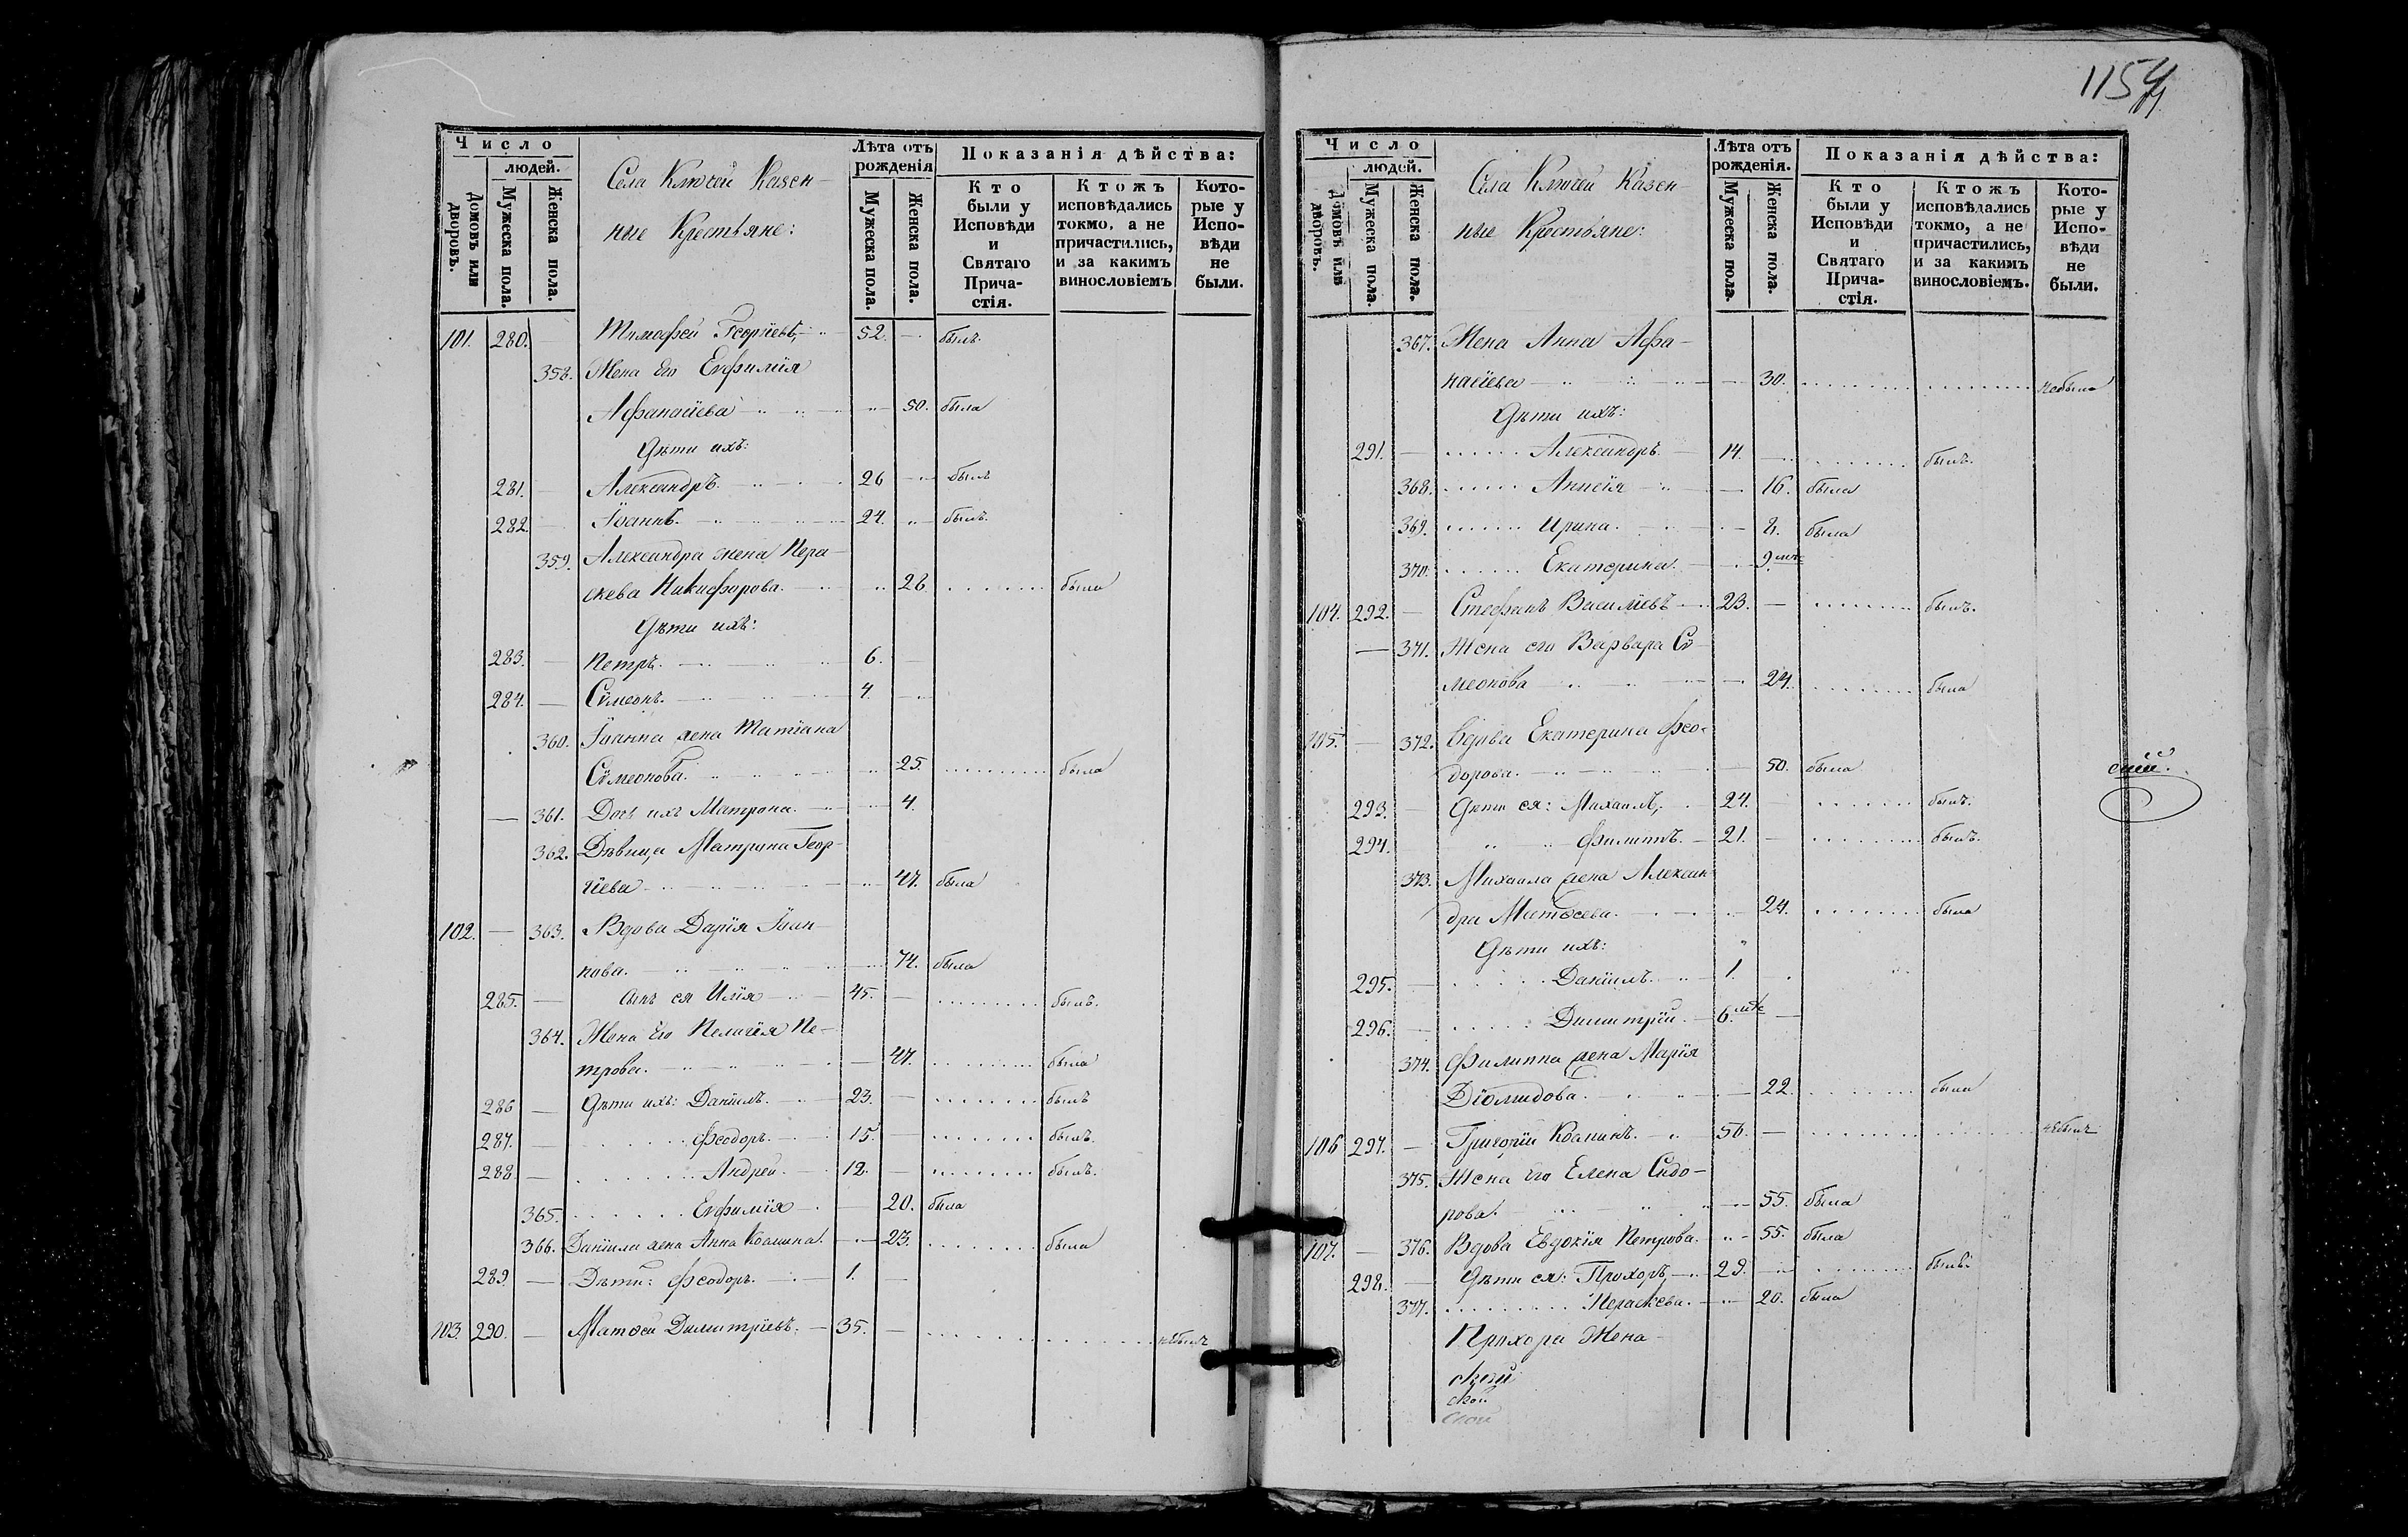 Число
людей.
Домовъ или дворовъ.
Мужеска пола.
Женска пола.
Села Ключей Казен-
ные Крестьяне:
Лѣта отъ рожденія
Мужеска пола.
Женска пола.
Показанія дѣйства:
Кто были у Исповѣди и Святаго Прича-стія.
Ктожъ исповѣдались токмо, а не причастились, и за какимъ винословіемъ
Кото-рые у Испо-вѣди не были.
101. 280. — Тимофей Георгіевъ, 52. — былъ.
358. Жена его Евфимія
Афанасіева — 50. была
Дѣти ихъ:
281. — Александръ. 26 — былъ
282. — Іоаннъ. — 24. — былъ.
359. Александра жена Пара-
скева Никифорова. 26. была
Дѣти ихъ:
283. — Петръ. — 6. —
284. — Сѵмеонъ. — 4. —
360. Іоанна жена Татіана
Сѵмеонова. 25. была
— 361. Дочь ихъ Матрона. — 4.
362. Дѣвица Матрона Геор-
гіева — 47. была
102. — 363. Вдова Дарія Іоан-
нова. — 74. была
285. — сынъ ея Илія — 45. — былъ.
364. Жена его Пелагія Пе-
трова. — 47. была
286 — Дѣти ихъ: Даніилъ. 23. — былъ
287. — Феодоръ. 15. — былъ.
288. — Андрей. 12. — былъ.
365. Евфимія — 20. была
366. Даніила жена Анна Козмина. — 23. была
289 — Дѣти: Феодоръ. — 1. —
103. 290. — Матѳей Димитріевъ. — 35. — небылъ
1154
Число
людей.
Домовъ или дворовъ.
Мужеска пола.
Женска пола.
Села Ключей Казен-
ные Крестьяне:
Лѣта отъ рожденія.
Мужеска пола.
Женска пола.
Показанія дѣйства:
Кто были у Исповѣди и Святаго Прича-стія.
Ктожъ исповѣдались токмо, а не причастились, и за какимъ винословіемъ.
Кото-рые у Испо-вѣди не были.
367. Жена Анна Афа-
насіева — 30. небыла
Дѣти ихъ:
291. — Александръ — 14. — былъ.
368. Аннсія — 16. была
369. Ирина. — 8. была
370. Екатерина. — 9. мѣс
104. 292. — Стефанъ Василіевъ — 23. — былъ.
— 371. Жена его Варвара Сѵ-
меонова — 24. была
105. — 372. Вдова Екатерина Фео-
дорова. — 50. была
293. — Дѣти ея: Михаилъ, 24. — былъ.
294. Филиппъ. — 21. — былъ.
373. Михаила жена Алексан-
дра Матѳеева. — 24. была
Дѣти ихъ:
295. — Даніилъ. 1. —
296. — Димитрій. — 6. мѣс —
374. Филиппа жена Марія
Діомидова. — 22. была
106 297. — Григорій Козминъ. — 56. — небылъ
375. Жена его Елена Сидо-
рова. — 55. была
107. — 376. Вдова Евдокія Петрова. 55. была
298. — Дѣти ея: Прохоръ, — 29. — былъ.
377. Параскева. — 20. была
Прохора Жена
ской
ской
ской